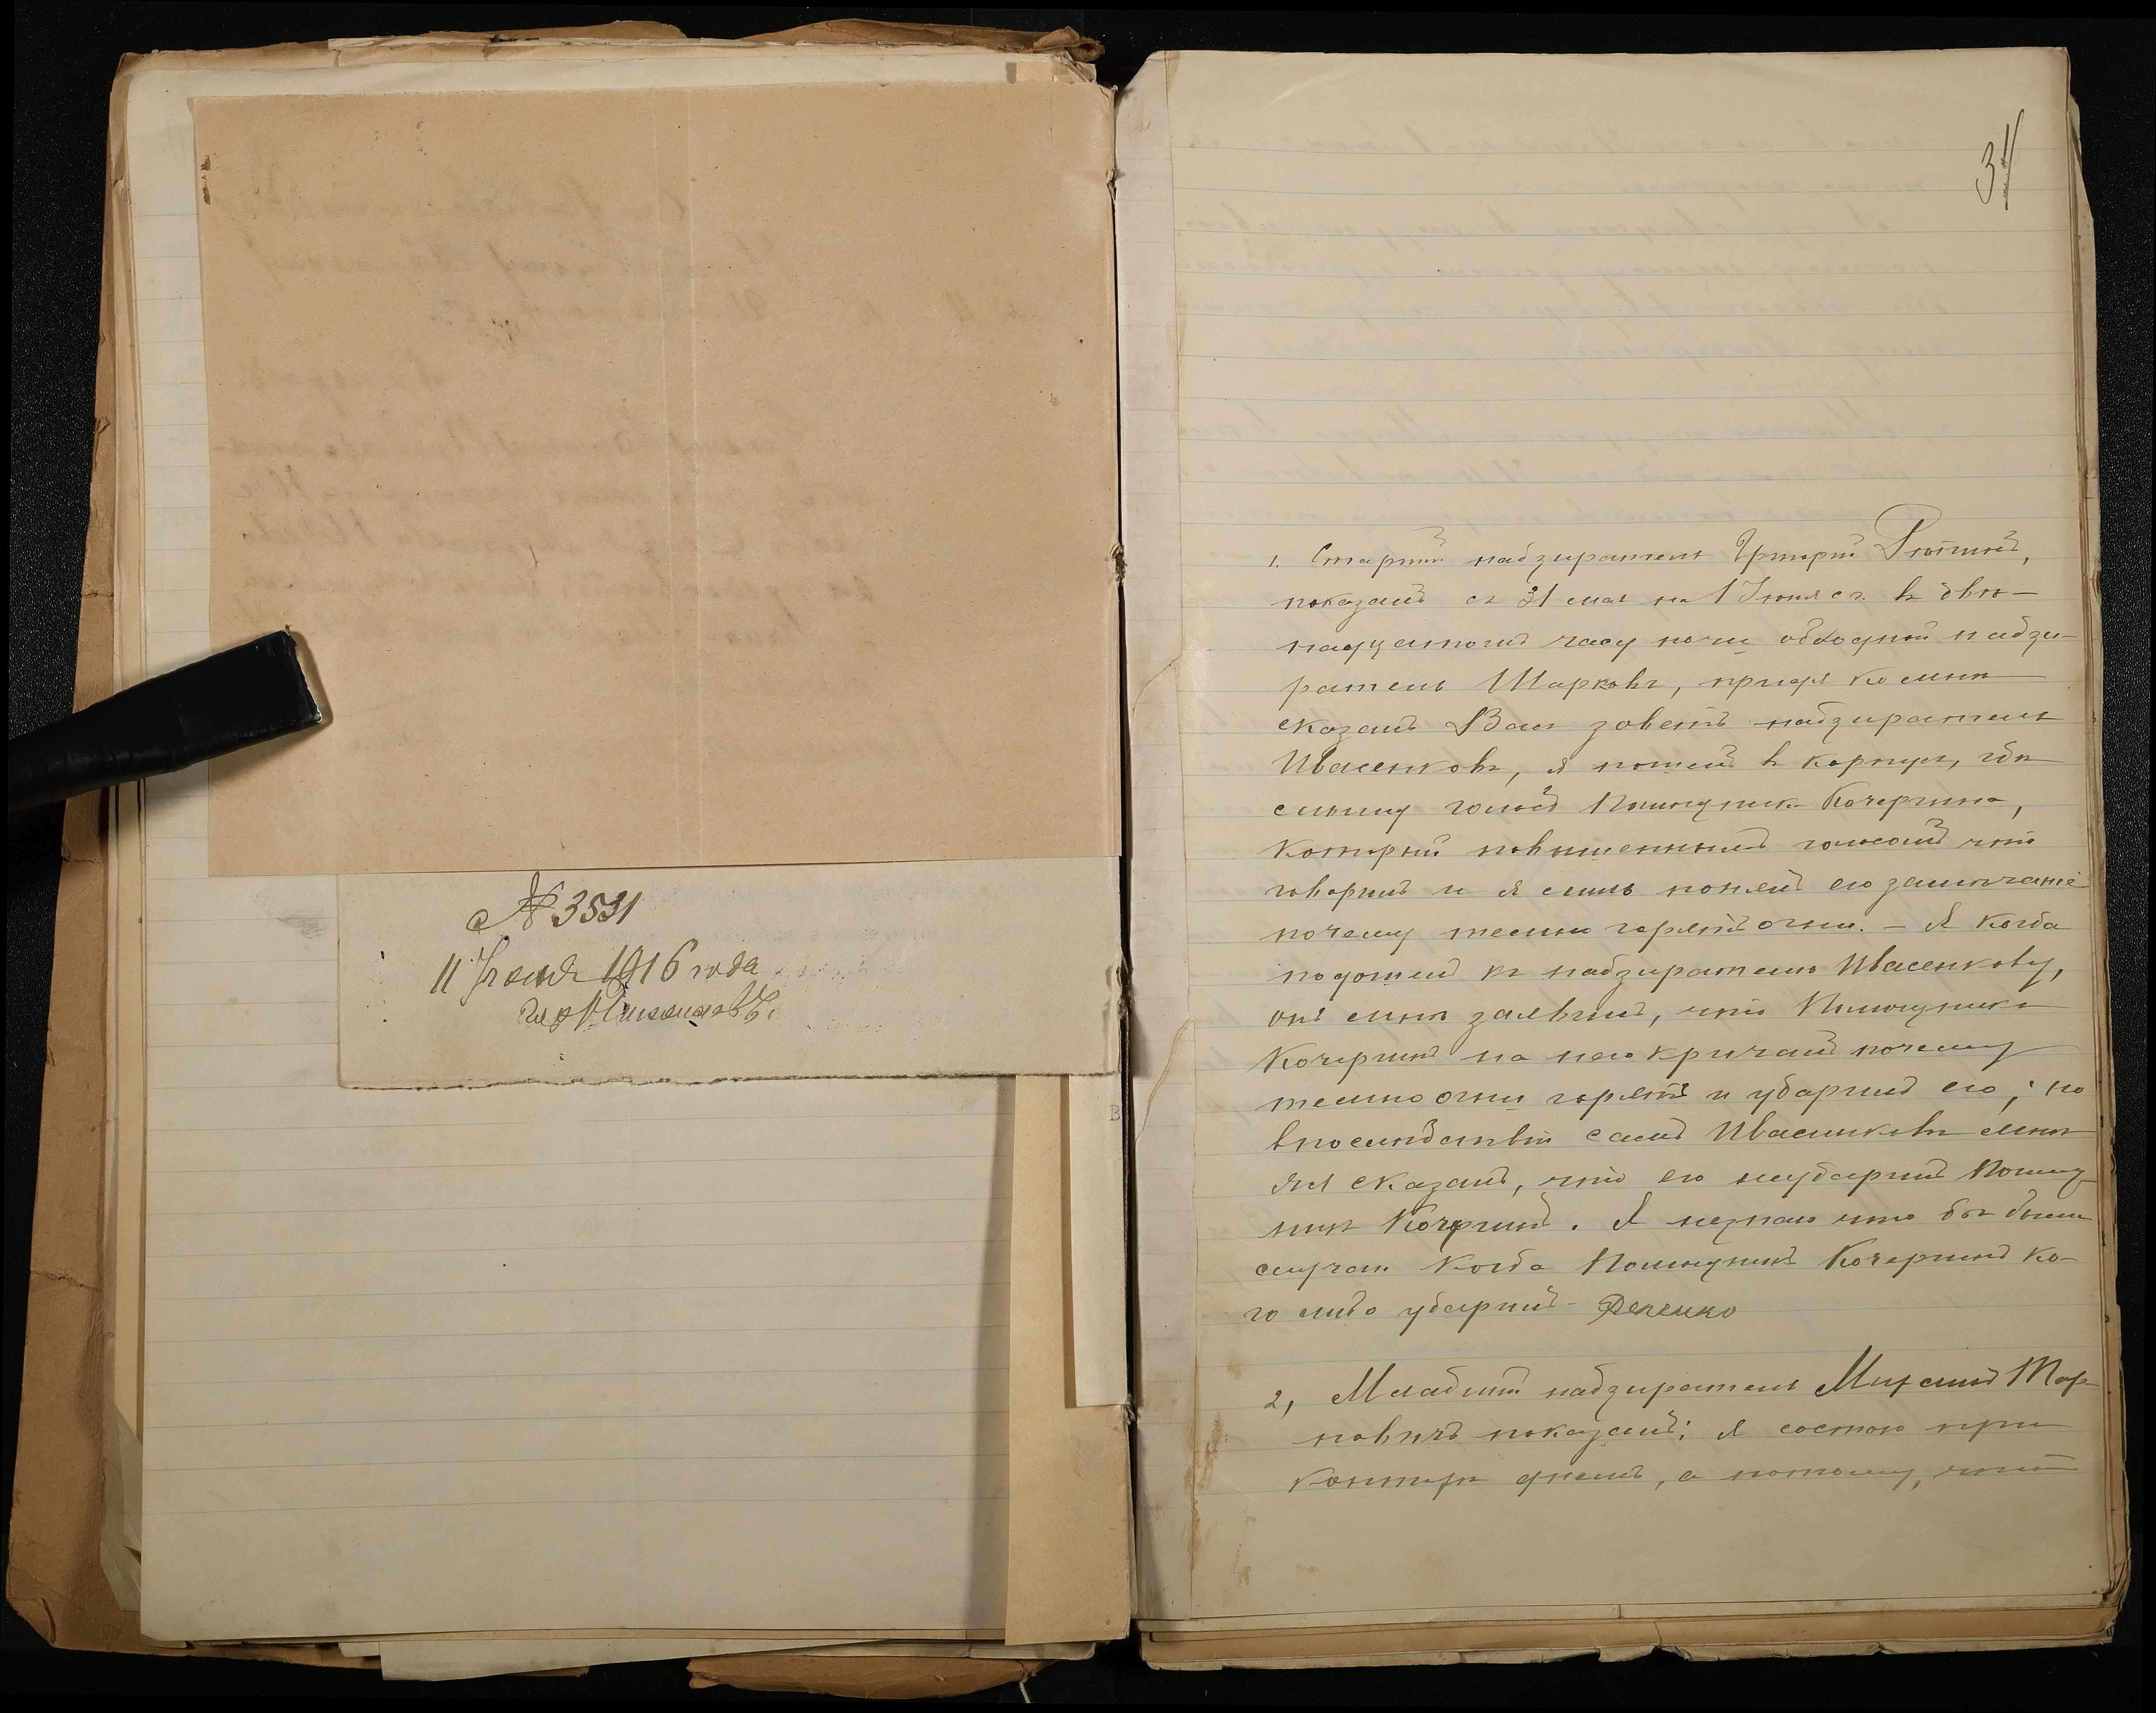 № 3531
11 Июня 1916 года
34
1. Старшій надзиратель Григорій
показалъ съ 31 мая на 1 Іюня с.г. въ двѣ-
надцатомъ часу ночи обходной надзи-
ратель Шарковъ, придя ко мнѣ
сказалъ Васъ зоветъ надзиратель
Ивасенковъ, я пошелъ въ корпусъ, гдѣ
слышу голосъ Помощника Кочергина,
который повышеннымъ голосомъ что
говорилъ и я лишь понялъ его замѣчаніе
почему темно горятъ огни. – Я когда
подошелъ къ надзирателю Ивасенкову,
онъ мнѣ заявилъ, что Помощникъ
Кочергинъ на него кричалъ почему
темно огни горятъ и ударилъ его, но
впослѣдствіи самъ Ивасенковъ мнѣ
сказалъ, что его неударилъ Помощ-
никъ Кочергинъ. Я незнаю что бы были
случаи когда Помощникъ Кочергинъ ко-
го либо ударилъ –
2, Младшій надзиратель Мар-
новичъ показалъ: я состою при
конторѣ днемъ, а потому, что